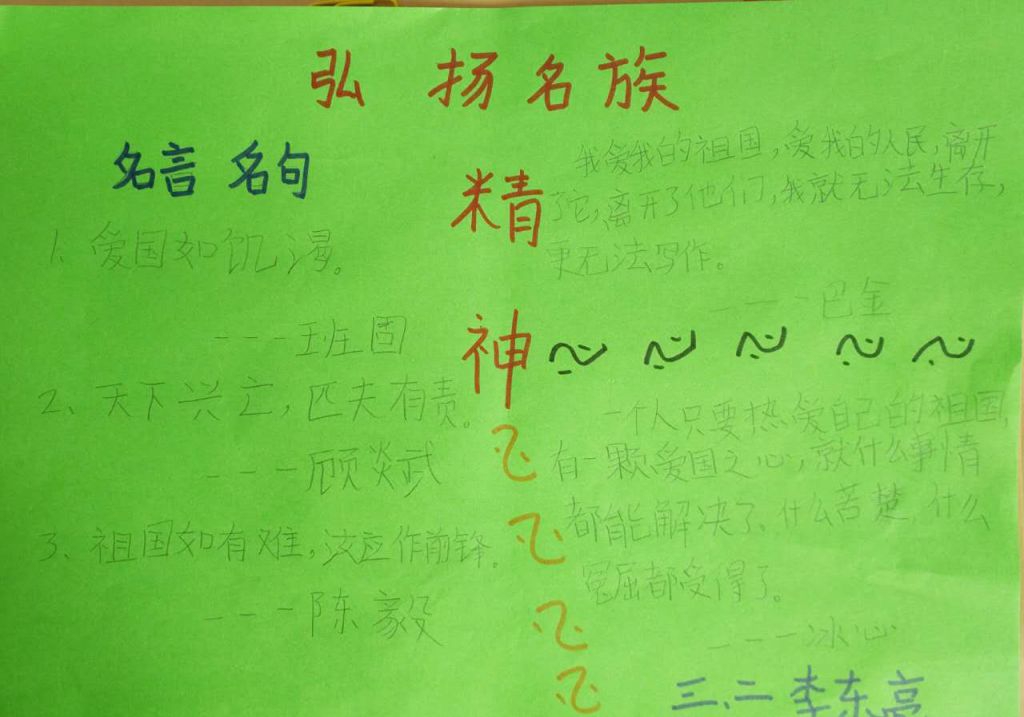 弘扬名族
精
神
名言名句
1、爱国如饥渴。
---班固
2、天下兴亡，匹夫有责。
---顾炎武
3、祖国如有难，汝应作前锋。
---陈毅
我爱我的祖国，爱我的人民，离开
了它，离开了他们，我就无法生存，
更无法写作。
---巴金
一个人只要热爱自己的祖国，
有一颗爱国之心，就什么事情
都能解决了、什么苦楚，什么
冤屈都受得了。
---冰心
三、二 李东亮